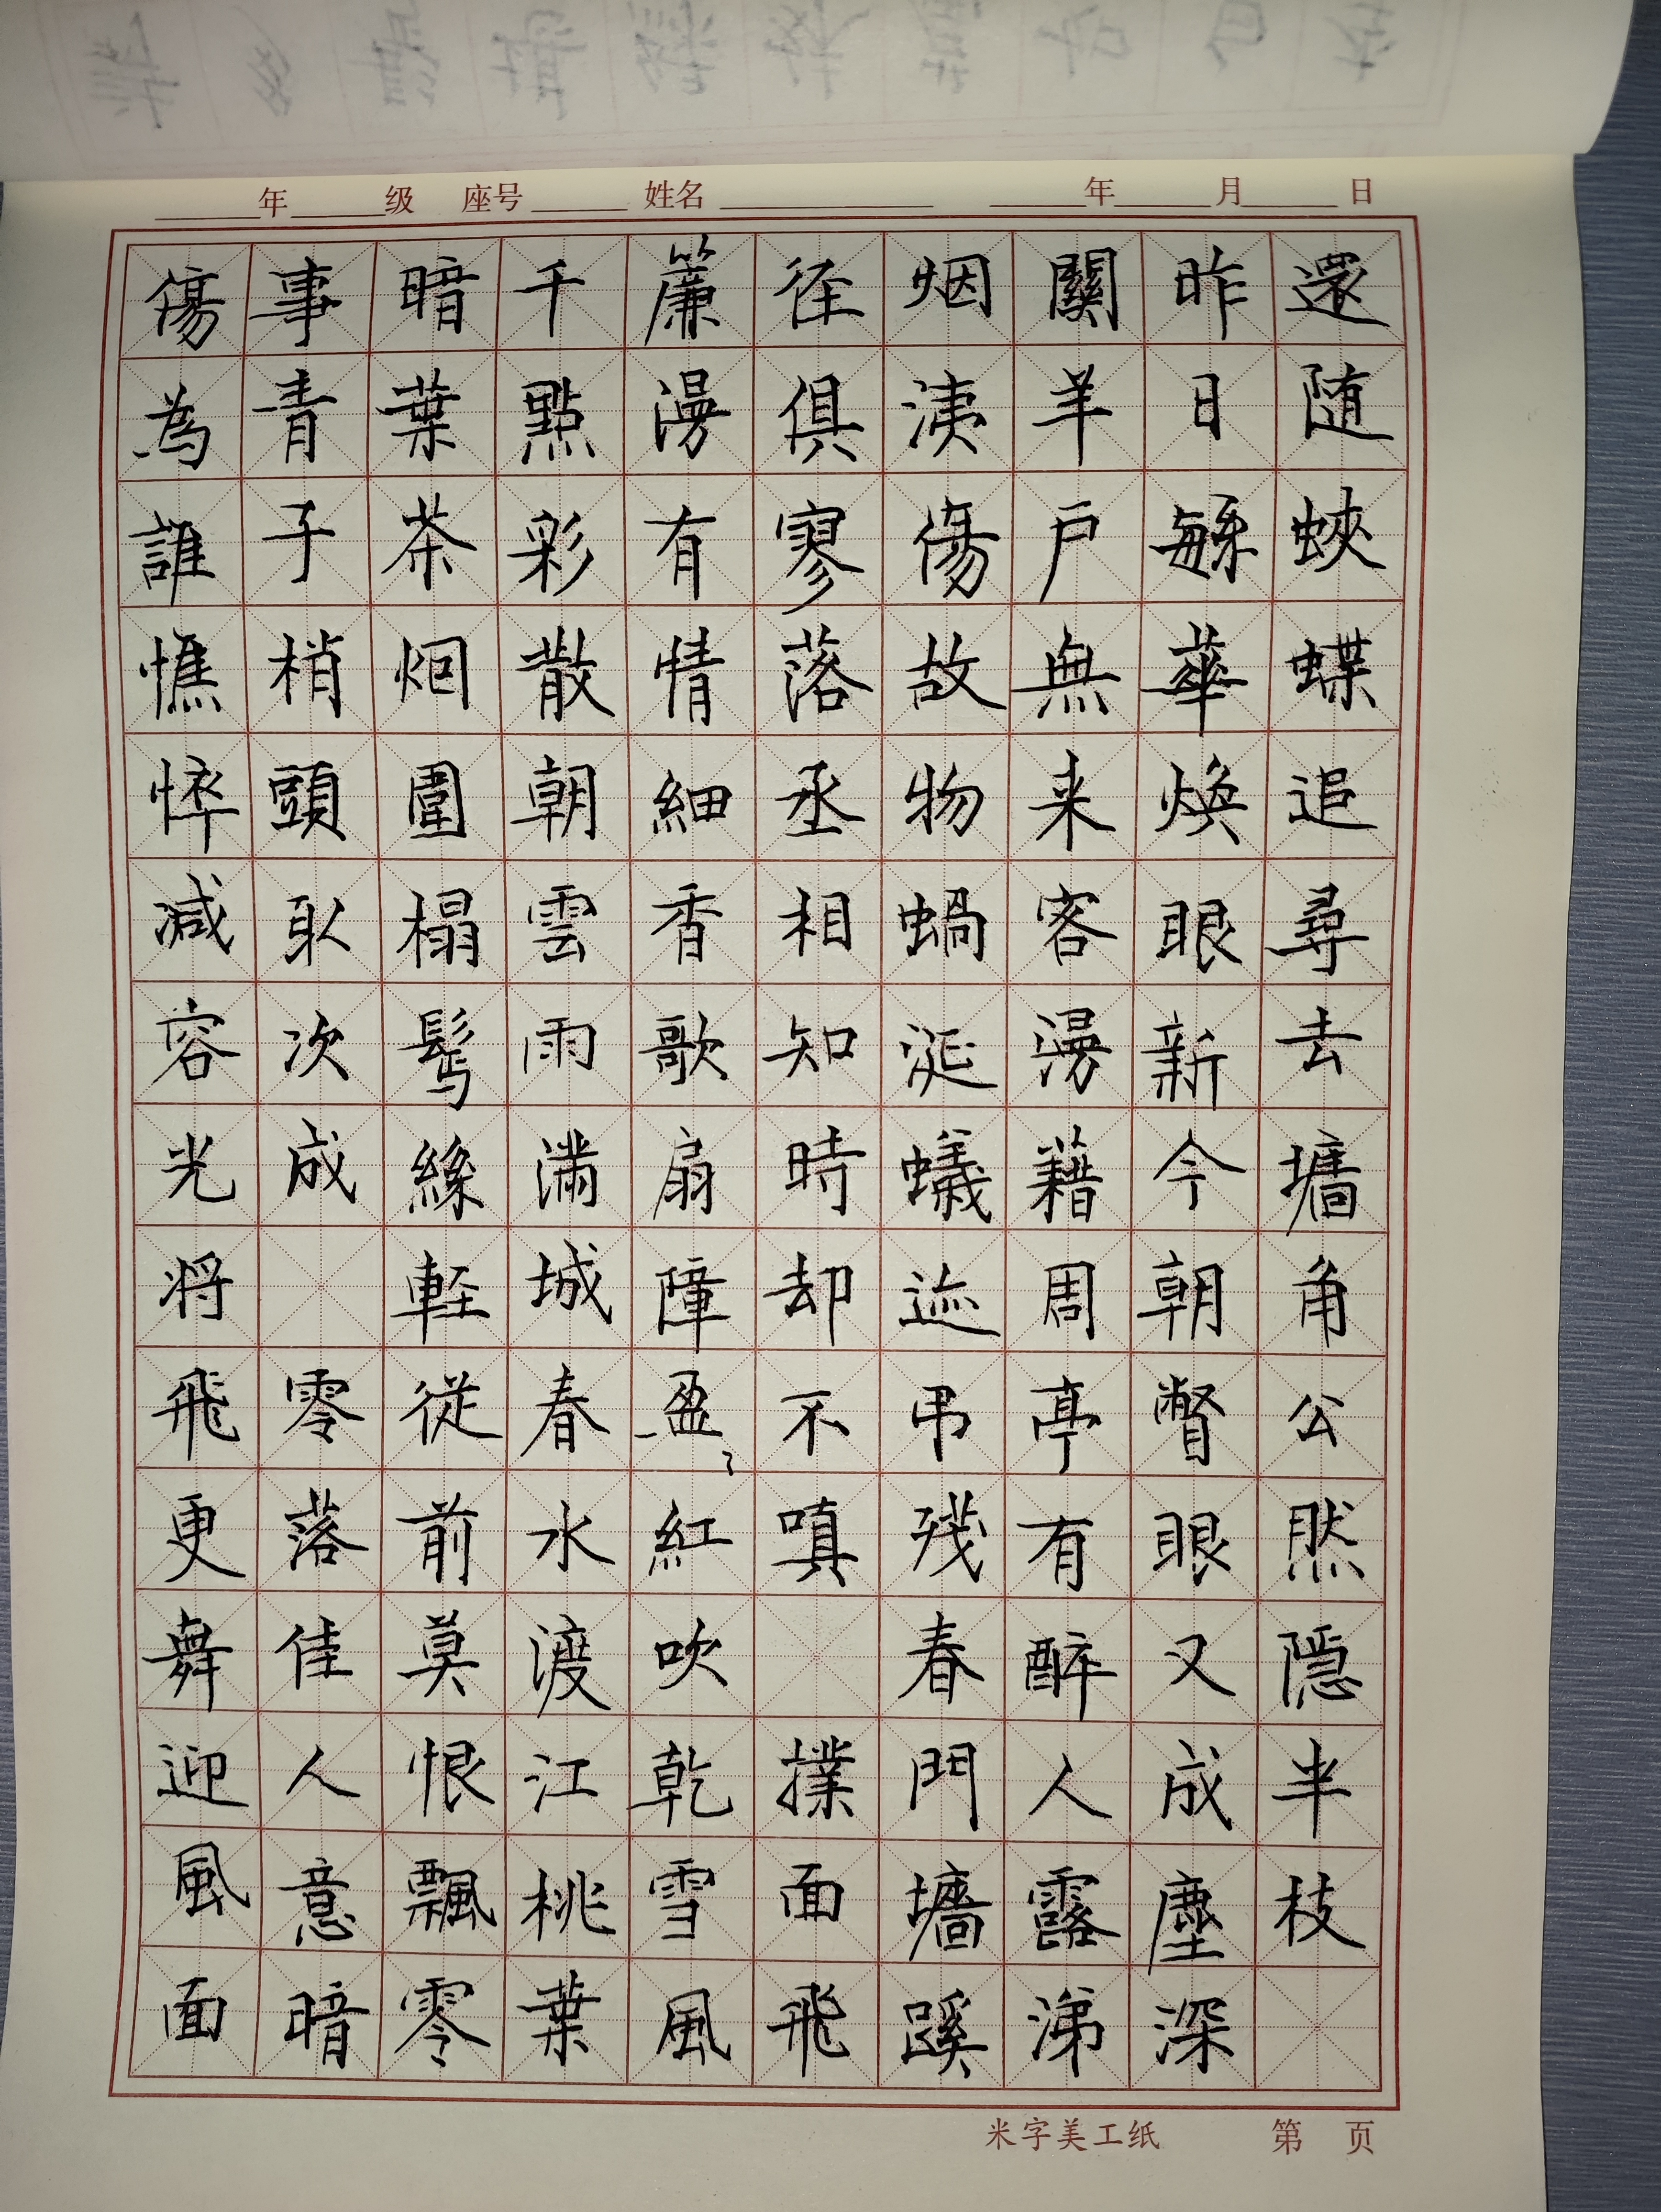 年 级 座号 姓名 年 月 日
還随蛺蝶追尋去墻角公然隱半枝
昨日緐華煥眼新今朝瞥眼又成塵深
關羊户無来客漫藉周亭有醉人露涕
烟洟傷故物蝸涎蟻迹吊残春門墻蹊
徑俱寥落丞相知時却不嗔 撲面飛
簾漫有情細香歌扇障盈〻紅吹乾雪風
千點彩散朝雲雨满城春水渡江桃葉
暗葉茶烟圍榻鬓絲輕從前莫恨飄零
事青子梢頭取次成 零落佳人意暗
傷為誰憔悴减容光将飛更舞迎風面
米字美工纸 第 页